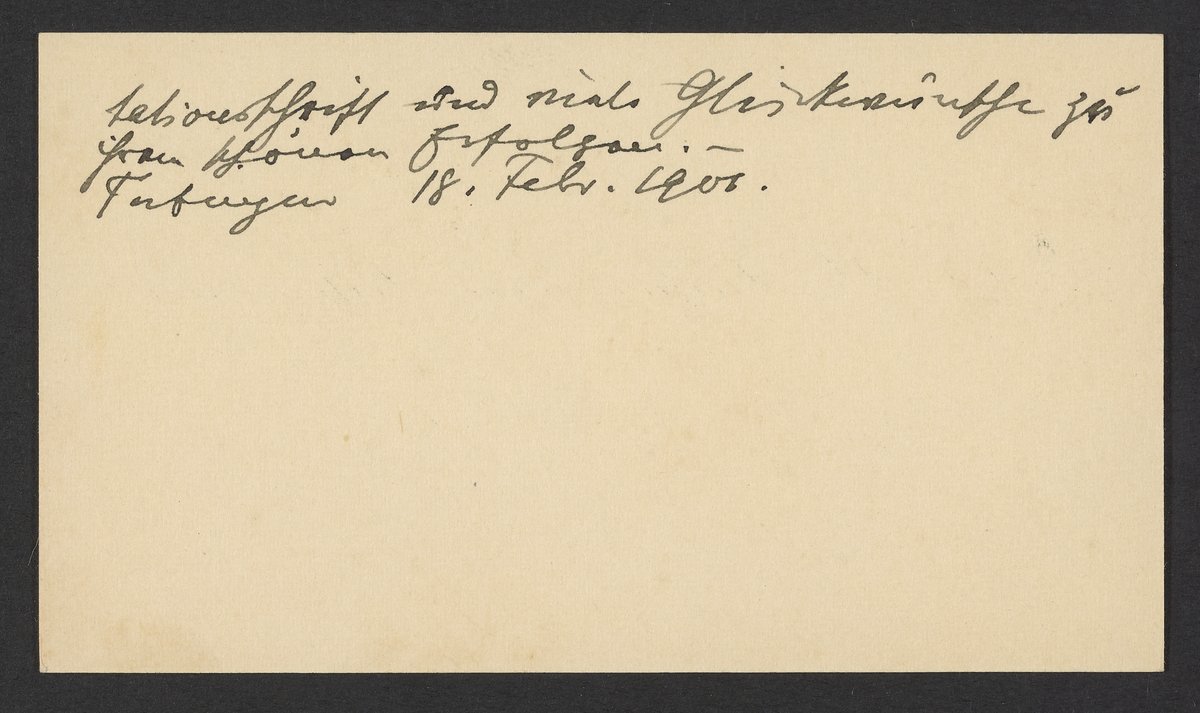 tationsschrift und viele Glückwünsche zu
ihren schönen Erfolgen. –
Tübingen 18. Febr. 1901.